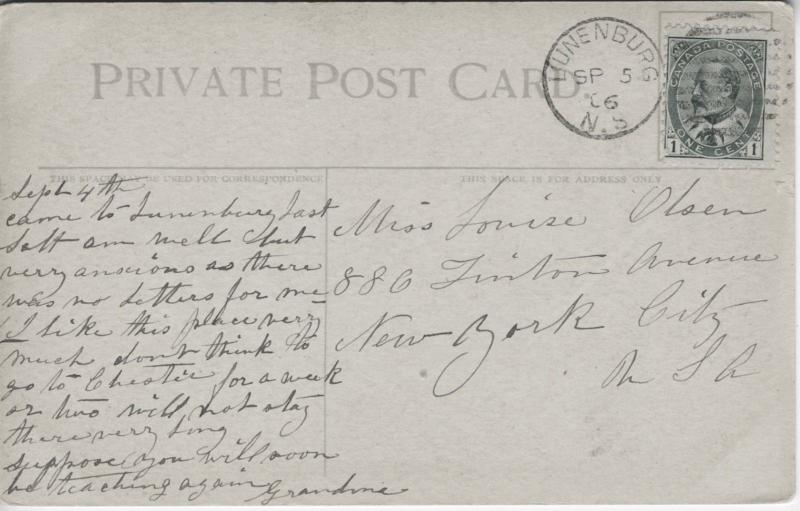 PRIVATE POST CARD
LUNENBURG
SP 5
06
N.S
CANADA POSTAGE
ONE CENT
1 1
THIS SPACE MAY BE USED FOR CORRESPONDENCE
THIS SPACE IS FOR ADDRESS ONLY
Sept 4th
came to Lunenburg last
Satt am well but
verry anscious as there
was no letters for me
I like this place verry
much dont think to
go to Chester for a week
or two will not stay
there verry long
suppose you will soon
be teaching again Grandma
Miss Louise Olsen
886 Tinton Avenue
New York City
U S A